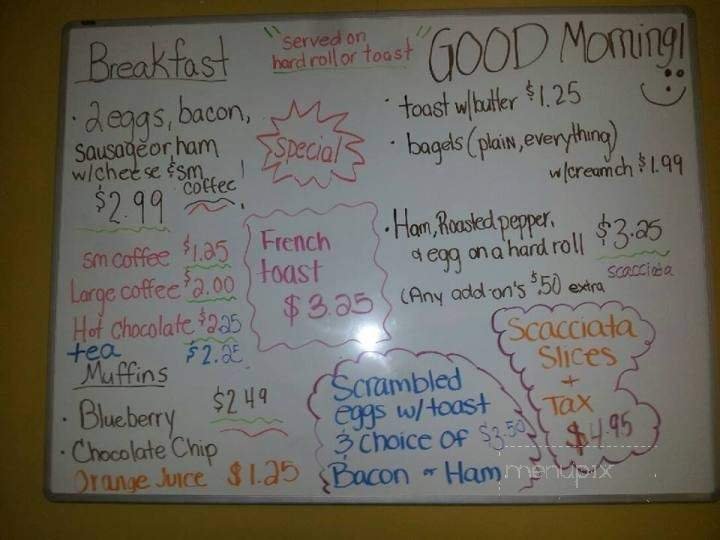 Breakfast
"served on
hard roll or toast"
GOOD Morning!
· 2 eggs, bacon,
sausage or ham
w/cheese & sm
coffee!
$2.99
Special
sm coffee $1.25
Large coffee $2.00
Hot Chocolate $2.25
tea $2.25
Muffins
· Blueberry $2.49
· Chocolate Chip
Orange Juice $1.25
French
toast
$3.25
· toast w/butter $1.25
· bagels (plain, everything)
w/creamch $1.99
· Ham, Roasted pepper,
& egg on a hard roll $3.25
scacciata
(Any add-on's $.50 extra
Scrambled
eggs w/toast
& choice of $3.50
Bacon or Ham
Scacciata
Slices
+
Tax
$4.95
menupix